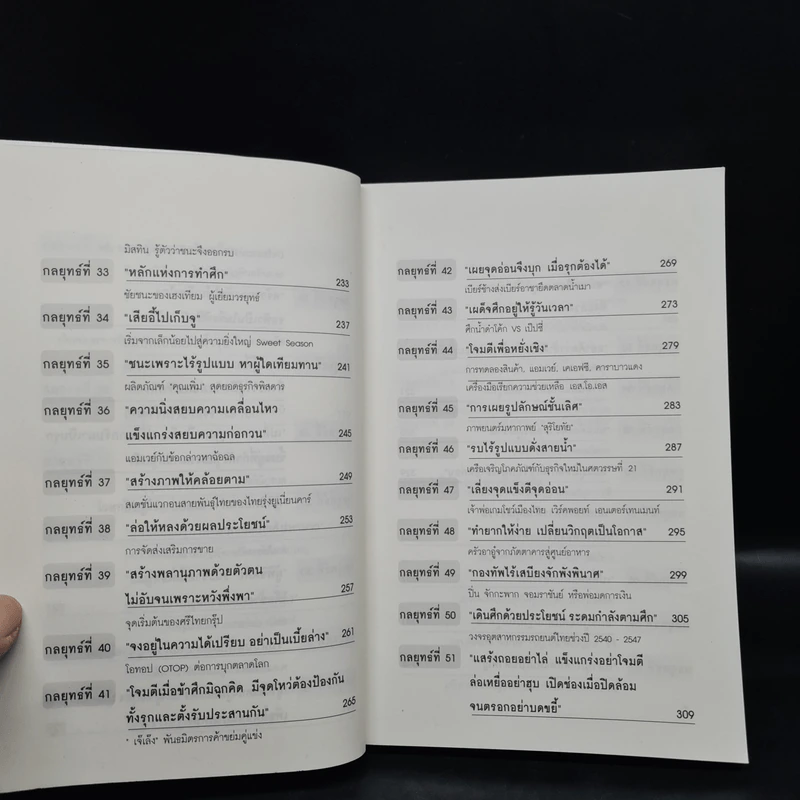 มิสทิน รู้ตัวว่าชนะจึงออกรบ
กลยุทธ์ที่ 33 "หลักแห่งการทำศึก" 233
ชัยชนะของเฮงเทียม ผู้เยี่ยมวรยุทธ์
กลยุทธ์ที่ 34 "เสียอี้ไปเก็บจู" 237
เริ่มจากเล็กน้อยไปสู่ความยิ่งใหญ่ Sweet Season
กลยุทธ์ที่ 35 "ชนะเพราะไร้รูปแบบ หาผู้ใดเทียมทาน" 241
ผลิตภัณฑ์ "คุณเพิ่ม" สุดยอดธุรกิจพิสดาร
กลยุทธ์ที่ 36 "ความนิ่งสยบความเคลื่อนไหว
แข็งแกร่งสยบความก่อกวน" 245
แอมเวย์กับข้อกล่าวหาฉ้อฉล
กลยุทธ์ที่ 37 "สร้างภาพให้คล้อยตาม" 249
สเตชั่นแวกอนสายพันธุ์ไทยของไทยรุ่งยูเนี่ยนคาร์
กลยุทธ์ที่ 38 "ล่อให้หลงด้วยผลประโยชน์" 253
การจัดส่งเสริมการขาย
กลยุทธ์ที่ 39 "สร้างพลานุภาพด้วยตัวตน
ไม่อับจนเพราะหวังพึ่งพา" 257
จุดเริ่มต้นของศรีไทยกรุ๊ป
กลยุทธ์ที่ 40 "จงอยู่ในความได้เปรียบ อย่าเป็นเบี้ยล่าง" 261
โอทอป (OTOP) ต่อการบุกตลาดโลก
กลยุทธ์ที่ 41 "โจมตีเมื่อข้าศึกมิฉุกคิด มีจุดโหว่ต้องป้องกัน
ทั้งรุกและตั้งรับประสานกัน" 265
"เจ๊เล้ง" พันธมิตรการค้าขย่มคู่แข่ง
กลยุทธ์ที่ 42 "เผยจุดอ่อนจึงบุก เมื่อรุกต้องได้" 269
เบียร์ช้างส่งเบียร์อาชายึดตลาดน้ำเมา
กลยุทธ์ที่ 43 "เผด็จศึกอยู่ให้รู้วันเวลา" 273
ศึกน้ำดำโค้ก VS เป๊ปซี่
กลยุทธ์ที่ 44 "โจมตีเพื่อหยั่งเชิง" 279
การทดลองสินค้า, แอมเวย์, เคเอฟซี, คาราบาวแดง
เครื่องมือเรียกความช่วยเหลือ เอส.โอ.เอส
กลยุทธ์ที่ 45 "การเผยรูปลักษณ์ชั้นเลิศ" 283
ภาพยนตร์มหากาพย์ "สุริโยทัย"
กลยุทธ์ที่ 46 "รบไร้รูปแบบดั่งสายน้ำ" 287
เครือเจริญโภคภัณฑ์กับธุรกิจใหม่ในศตวรรษที่ 21
กลยุทธ์ที่ 47 "เลี่ยงจุดแข็งตีจุดอ่อน" 291
เจ้าพ่อเกมโชว์เมืองไทย เวิร์คพอยท์ เอนเตอร์เทนเมนท์
กลยุทธ์ที่ 48 "ทำยากให้ง่าย เปลี่ยนวิกฤตเป็นโอกาส" 295
ครัวอาอู๋จากภัตตาคารสู่ศูนย์อาหาร
กลยุทธ์ที่ 49 "กองทัพไร้เสบียงจักพังพินาศ" 299
ปิ่น จักกะพาก จอมราชันย์ หรือพ่อมดการเงิน
กลยุทธ์ที่ 50 "เดินศึกด้วยประโยชน์ ระดมกำลังตามศึก" 305
วงจรอุตสาหกรรมรถยนต์ไทยช่วงปี 2540 - 2547
กลยุทธ์ที่ 51 "แสร้งถอยอย่าไล่ แข็งแกร่งอย่าโจมตี
ล่อเหยื่ออย่าฮุบ เปิดช่องเมื่อปิดล้อม
จนตรอกอย่าบดขยี้" 309